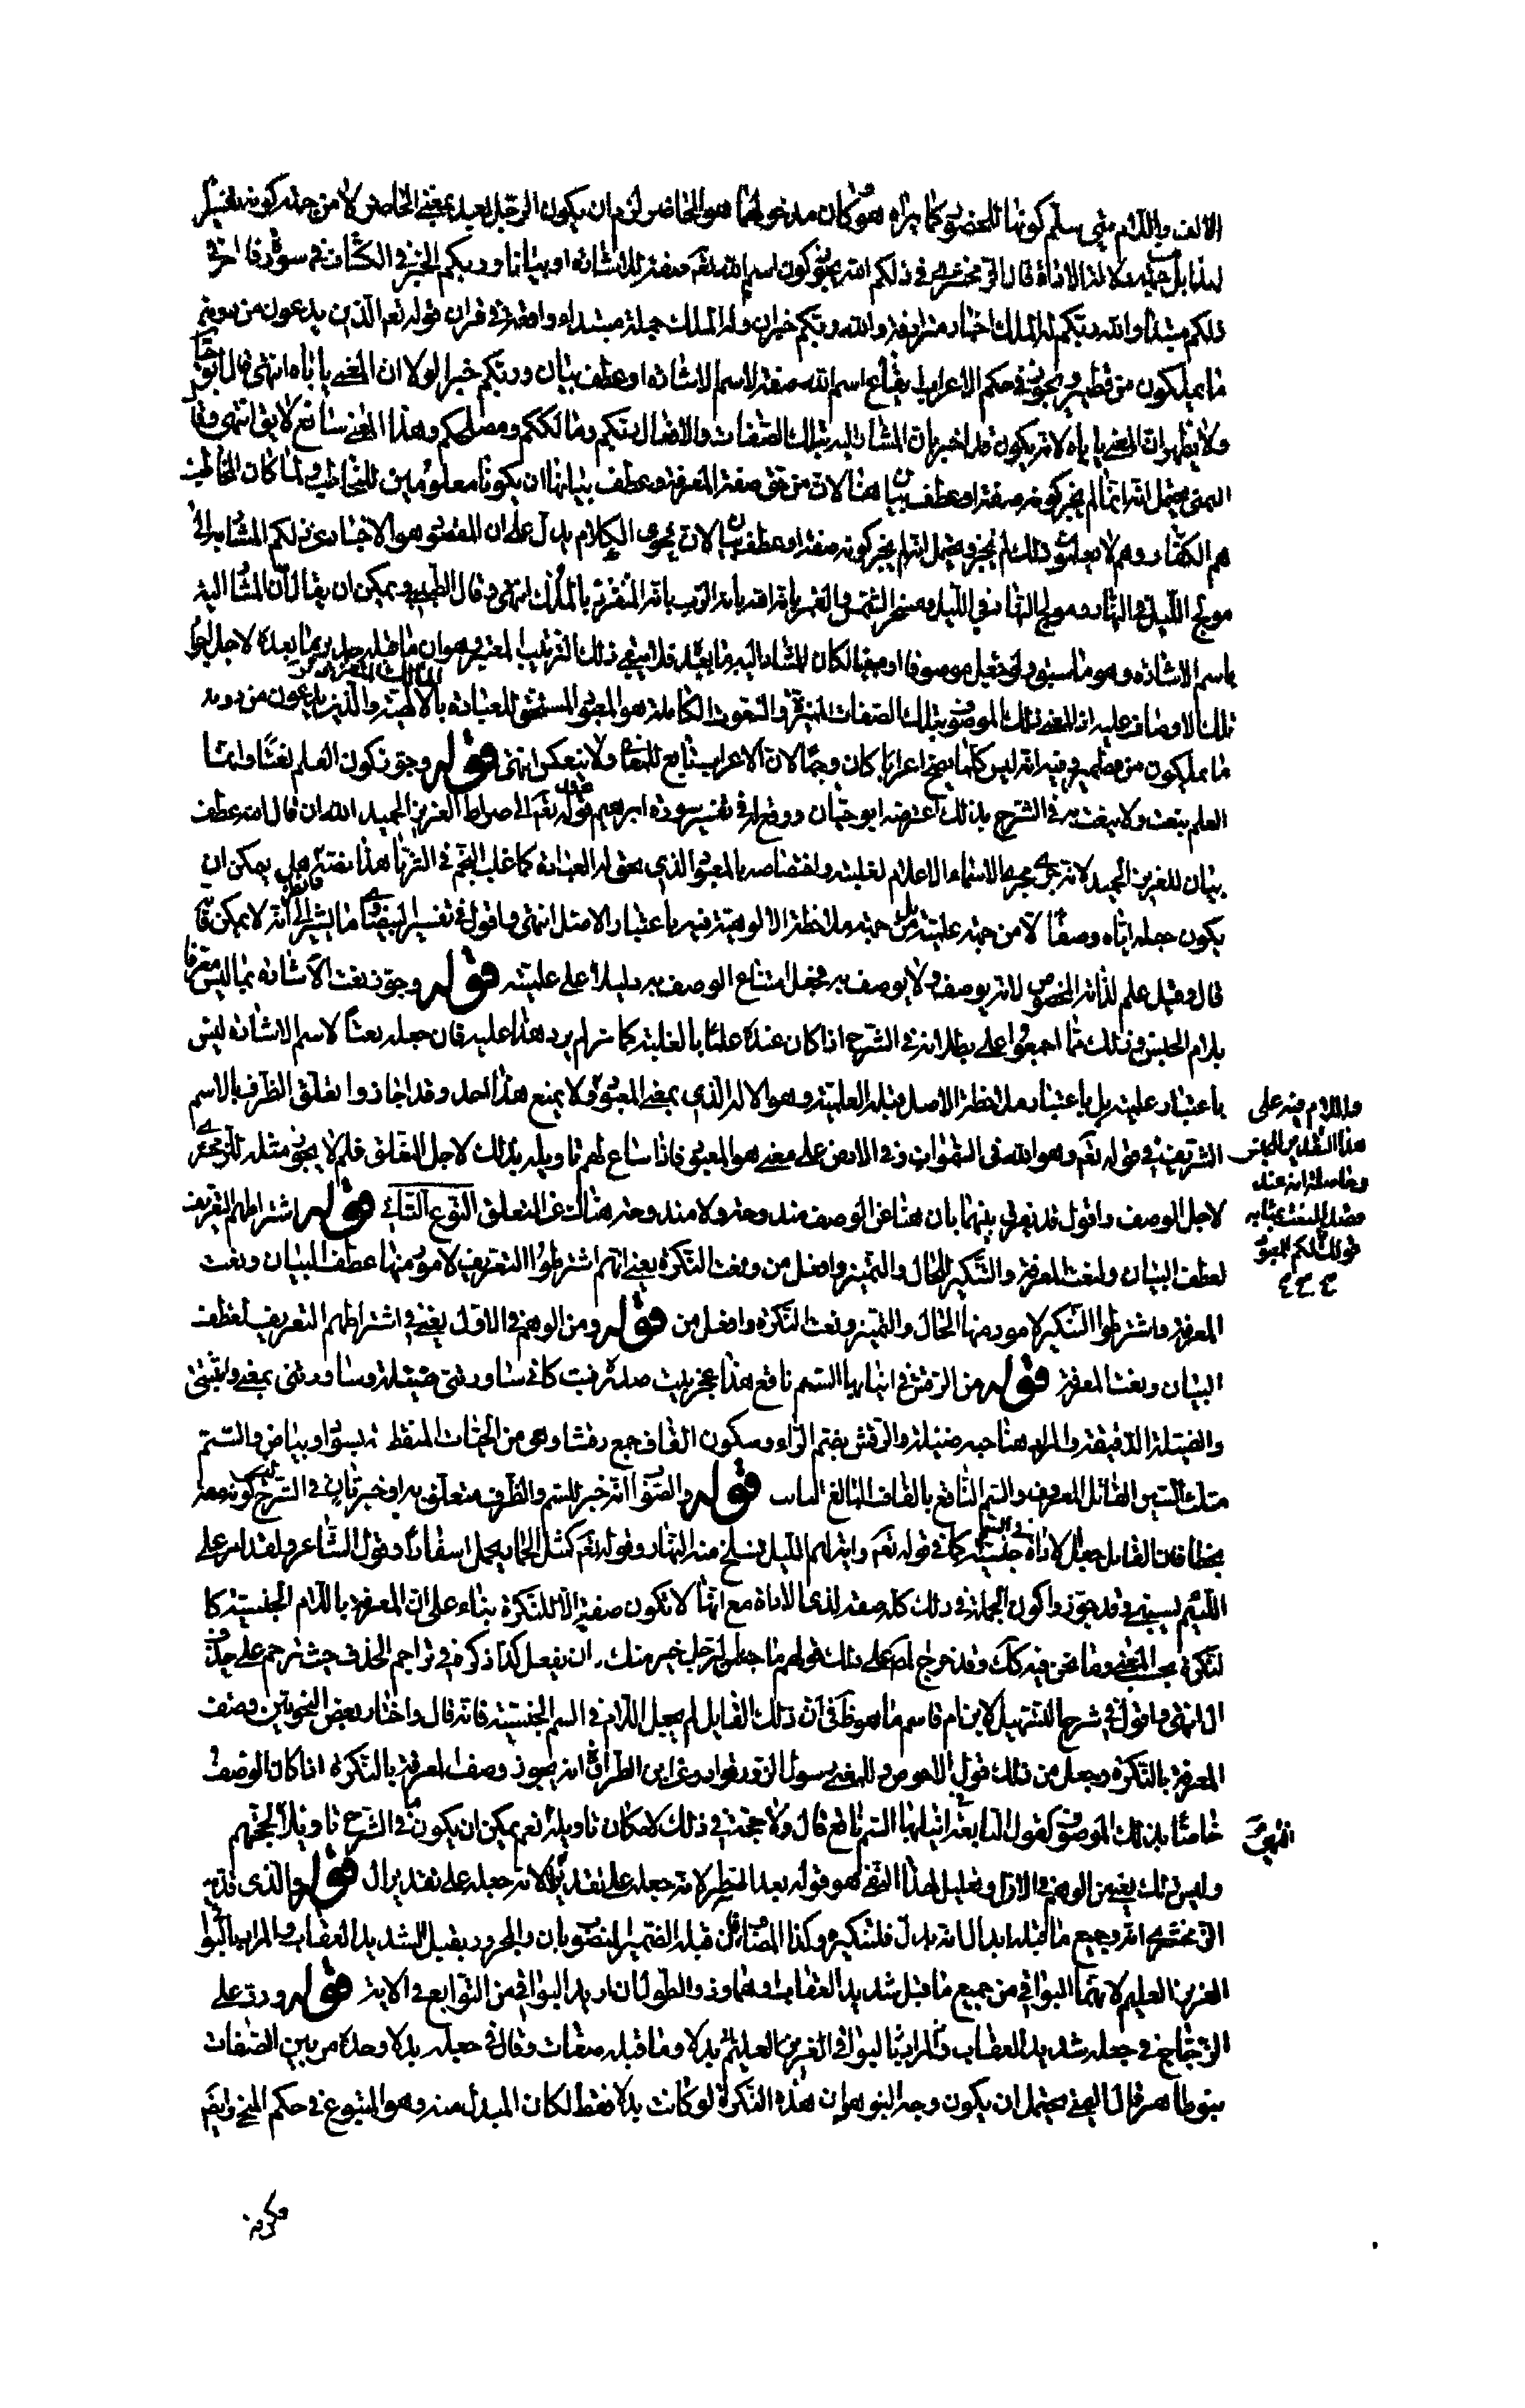 الالف واللام متى سلم كونها للحضور كما يراه هو وكان مدخولهما هو الحاضر لزم ان يكون الرجل بعيد بمعنى الحاضر لا من جهة كونه تفسيرا
لهذا بل قال الزمخشري في ذلكم الله يجوز كون اسم الله تعالى صفة للاشارة او بيانا وربكم الخبر في الكشاف في سورة فاطر
ذلكم مبتدأ والله ربكم له الملك اخبار مترادفة والله ربكم خبران وله الملك جملة مبتداءة واقعة في قران قوله تعالى الذين يدعون من دونه
ما يملكون من قطمير ويجوز في حكم الاعراب ايقاع اسم الله صفة لاسم الاشارة او عطف بيان وربكم خبرا لولا ان المعنى ياباه انتهى قال ابو حيان
ولا يظهر ان المعنى ياباه لانه يكون قد اخبر بان المشار اليه بتلك الصفات والافعال ربكم ومالككم ومصلحكم وهذا المعنى سائغ لائق انتهى وقال
اليمني يحتمل انه انما لم يجز كونه صفة او عطف بيان هنا لان من حق صفة المعرفة وعطف بيانها ان يكونا معلومين للمخاطب ولما كان المخاطب
هم الكفار وهم لا يعلمون ذلك لم يجز ويحتمل انه لم يجز كونه صفة او عطف بيان لان فحوى الكلام يدل على ان المقصود هو الاخبار عن ذلكم المشار به الى
مولج الليل في النهار ومولج النهار في الليل ومسخر الشمس والقمر بانه الله بانه الرب بانه المتفرد بالملك انتهى وقال الطيبي ويمكن ان يقال ان المشار اليه
باسم الاشارة وهو ما سبق ولو جعل موصوفا او مبينا لكان المشار اليه ما بعده فلا يبقى ذلك الترتيب المعتبر وهو ان ما قبله جدير بما بعده لاجل اجراء
تلك الاوصاف عليه اذ المعنى ذلك الموصوف بتلك الصفات المميزة والنعوت الكاملة هو المعبود المستحق للعبادة بالالهية والذين يدعون من دونه
ما يملكون من قطمير وفيه انه ليس كلما يصح اعرابا كان وجها لان الاعراب تابع للمعنى ولا ينعكس انتهى قوله وجوز كون العلم نعتا وانما
العلم ينعت ولا ينعت به في الشرح بذلك اعترضه ابو حيان ووقع له في تفسير سورة ابرهيم قوله تعالى الى صراط العزيز الحميد الله ان قال انه عطف
بيان للعزيز الحميد لانه جرى مجرى الاسماء الاعلام لغلبته واختصاصه بالمعبود الذي يحق له العبادة كما غلب النجم في الثريا هذا نصه يمكن ان
يكون جعله اياه وصفا لا من جهة علميته بل من جهة ملاحظة الالوهية فيه باعتبار الاصل انتهى واقول في تفسير البيضاوي ما يشير الى انه لا يمكن فانه
قال وقيل علم لذاته المخصوص لانه يوصف ولا يوصف به فجعل امتناع الوصف به دليلا على علميته قوله وجوز نعت الاشارة بما ليس معرفا
بلام الجنس وذلك مما اجمعوا على بطلانه في الشرح اذا كان عنده علما بالغلبة كما مر لم يرد هذا عليه فان جعله نعتا لاسم الاشارة ليس
باعتبار علميته بل باعتبار ملاحظة الاصل قبل العلمية وهو الاله الذي بمعنى المعبود ولا يمنع هذا احد وقد اجازوا تعلق الظرف بالاسم
الشريف في قوله تعالى وهو الله في السموات وفي الارض على معنى هو المعبود فاذا ساغ لهم تاويله بذلك لاجل التعلق فلم لا يجوز مثله للزمخشري
لاجل الوصف واقول قد يفرق بينهما بان هنا عن الوصف مندوحة ولا مندوحة هناك عن التعلق النوع الثاني قوله اشتراطهم التعريف
لعطف البيان ولنعت المعرفة والتنكير للحال والتمييز وافعل من ونعت النكرة يعني انهم اشترطوا التعريف لامور منها عطف البيان ونعت
المعرفة واشترطوا التنكير لامور منها الحال والتمييز ونعت النكرة وافعل من قوله ومن الوهم في الاول يعني في اشتراطهم التعريف لعطف
البيان ونعت المعرفة قوله من الرقش في انيابها السم ناقع هذا عجز بيت صدره فبت كاني ساورتني ضئيلة وساورتني بمعنى واثبتني
والضئيلة الدقيقة والمراد هنا حية ضئيلة والرقش بضم الراء وسكون القاف جمع رقشا وهو من الحيات المنقط بسواد وبياض والسم
مثلث السين القاتل المعروف والسم الناقع بالقاف البالغ قوله والصواب انه خبر للسم والظرف متعلق به او خبر ثان في الشرح كونه صفة
وقوله تعالى كمثل الحمار يحمل اسفارا وقول الشاعر ولقد امر على
اللئيم يسبني وقد جوزوا كون الجملة في ذلك كله صفة لذي الاداة مع انها لا تكون صفة الا للنكرة بناء على ان المعرف باللام الجنسية كا
لنكرة بحسب المعنى وما نحن فيه كذلك وقد خرج المص على ذلك قولهم ما ينبغي للرجل خير منك ان يفعل كذا ذكره في تراجم الحذف حيث ترجم على حذف
ال انتهى واقول في شرح التسهيل لابن ام قاسم ما هو ظ في ان ذلك القايل لم يجعل اللام في السم الجنسية فانه قال واختار بعض النحويين وصف
المعرفة بالنكرة وجعل من ذلك قول وللمغني رسول الزور قواد وعن ابن الطراوة انه يجوز وصف المعرفة بالنكرة اذا كان الوصف
خاصا بذلك الموصوف كقول النابغة انيابها السم ناقع قال ولا حجة في ذلك لامكان تاويله نعم يمكن ان يكون في الشرح تاويلا لحجتهم
وليس ذلك يعني من الوهم في الاول وتعليل لهذا النفي هو قوله بعد اسطر لانه جعله على تقدير ال قوله والذي قدمه
الزمخشري انه وجميع ما قبله ابدال اما انه بدل فلتنكيره وكذا المضافان قبله
العزيز العليم لانهما البواقي من جميع ما قبل شديد العقاب وهما وذو الطول ان اريد البواقي من التوابع في الاية قوله ورد على
الزجاج في جعله شديد العقاب والمراد بالبواقي العزيز العليم بدلا وما قبله صفات وقال في جعله بدلا وحده من بين الصفات
نبو ظاهر قال اليمني يحتمل ان يكون وجه النبو هو ان هذه النكرة لو كانت بدلا فقط لكان المبدل منه وهو المتبوع في حكم المنحي وايضا
واللام فيه على
هذا التقدير للجنس
قولك ذلكم المعبود
انتهى